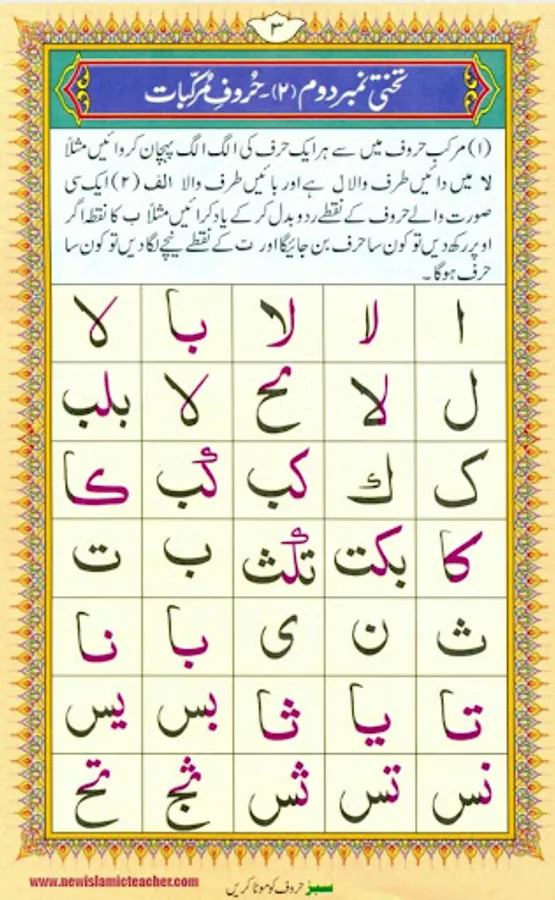 ۳
تختی نمبر دوم (۲)۔ حُروفِ مُرکّبات
(۱) مرکب حروف میں سے ہر ایک حرف کی الگ الگ پہچان کروائیں مثلاً
لا میں دائیں طرف والا ل ہے اور بائیں طرف والا الف (۲) ایک سی
صورت والے حروف کے نقطے رد و بدل کر کے یاد کرائیں مثلاً ب کا نقطہ اگر
اوپر رکھ دیں تو کون سا حرف بن جائیگا اور ت کے نقطے نیچے لگا دیں تو کون سا
حرف ہوگا۔
ا لا لا با لا
ل لا لا بلب
ک ك کب کا
کا بکت ب ت
ث ن ی با نا
تا یا ثا بس یس
نس تس ثس تح
سبز حروف کو موٹا کریں
www.newislamicteacher.com